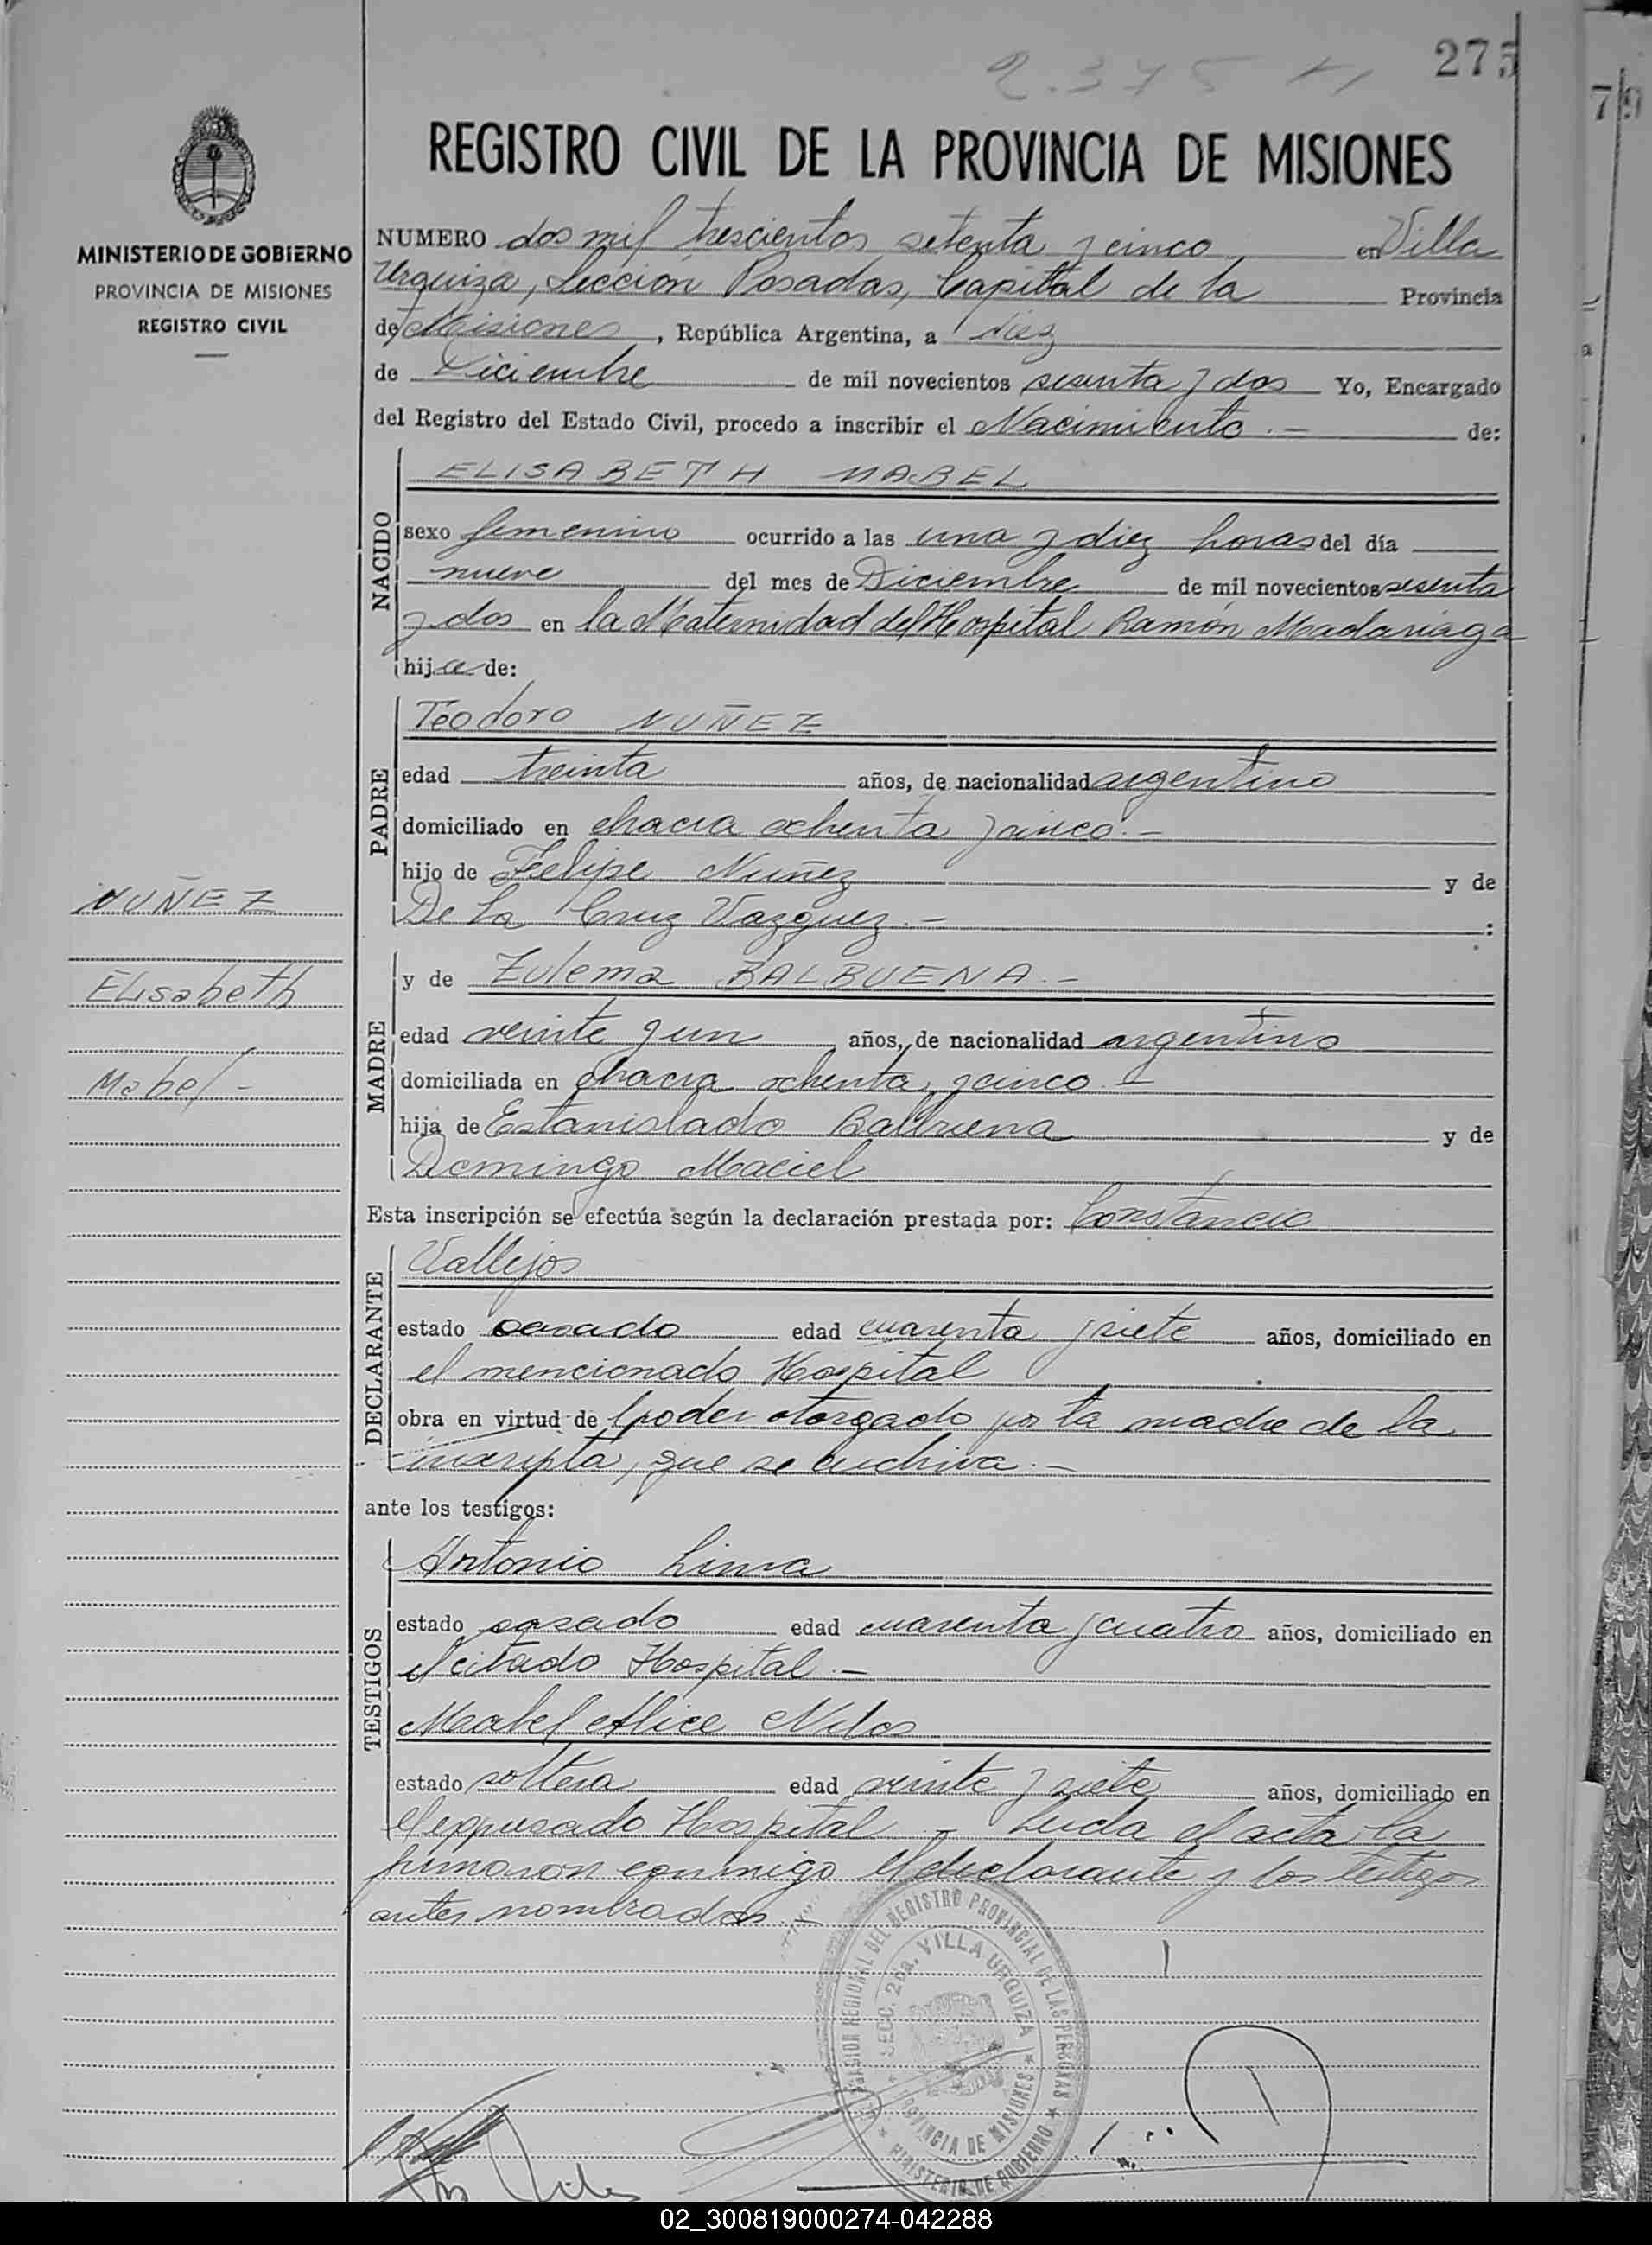 275
2.375
79
REGISTRO CIVIL DE LA PROVINCIA DE MISIONES
MINISTERIO DE GOBIERNO
PROVINCIA DE MISIONES
REGISTRO CIVIL
NUMERO dos mil trescientos setenta y cinco en Villa
Urquiza, Sección Posadas, Capital de la Provincia
de Misiones, República Argentina, a diez
de Diciembre de mil novecientos sesenta y dos Yo, Encargado
del Registro del Estado Civil, procedo a inscribir el Nacimiento.- de:
NACIDO
ELISABETH MABEL
sexo femenino ocurrido a las una y diez horas del día
nueve del mes de Diciembre de mil novecientos sesenta
y dos en la Maternidad del Hospital Ramón Madariaga
hija de:
PADRE
Teodoro NUÑEZ
edad treinta años, de nacionalidad argentino
domiciliado en chacra ochenta y cinco.-
hijo de Felipe Nuñez y de
De la Cruz Vazquez.- :
NUÑEZ
Elisabeth
Mabel-
MADRE
y de Zulema BALBUENA.-
edad veinte y un años, de nacionalidad argentina
domiciliada en chacra ochenta y cinco.-
hija de Estanislado Balbuena y de
Domingo Maciel
Esta inscripción se efectúa según la declaración prestada por: Constancio
DECLARANTE
Vallejos
estado casado edad cuarenta y siete años, domiciliado en
el mencionado Hospital
obra en virtud de poder otorgado por la madre de la
inscripta, que se archiva.-
ante los testigos:
TESTIGOS
Antonio Lima
estado casado edad cuarenta y cuatro años, domiciliado en
el citado Hospital.-
Mabel Alice
estado soltera edad veinte y siete años, domiciliado en
el expresado Hospital - Leida el acta la
firmaron conmigo el declarante y los testigos
antes nombrados.-
REGIONAL DEL REGISTRO PROVINCIAL DE LAS PERSONAS
SECC. 2da. VILLA URQUIZA
PROVINCIA DE MISIONES
MINISTERIO DE GOBIERNO
02_300819000274-042288